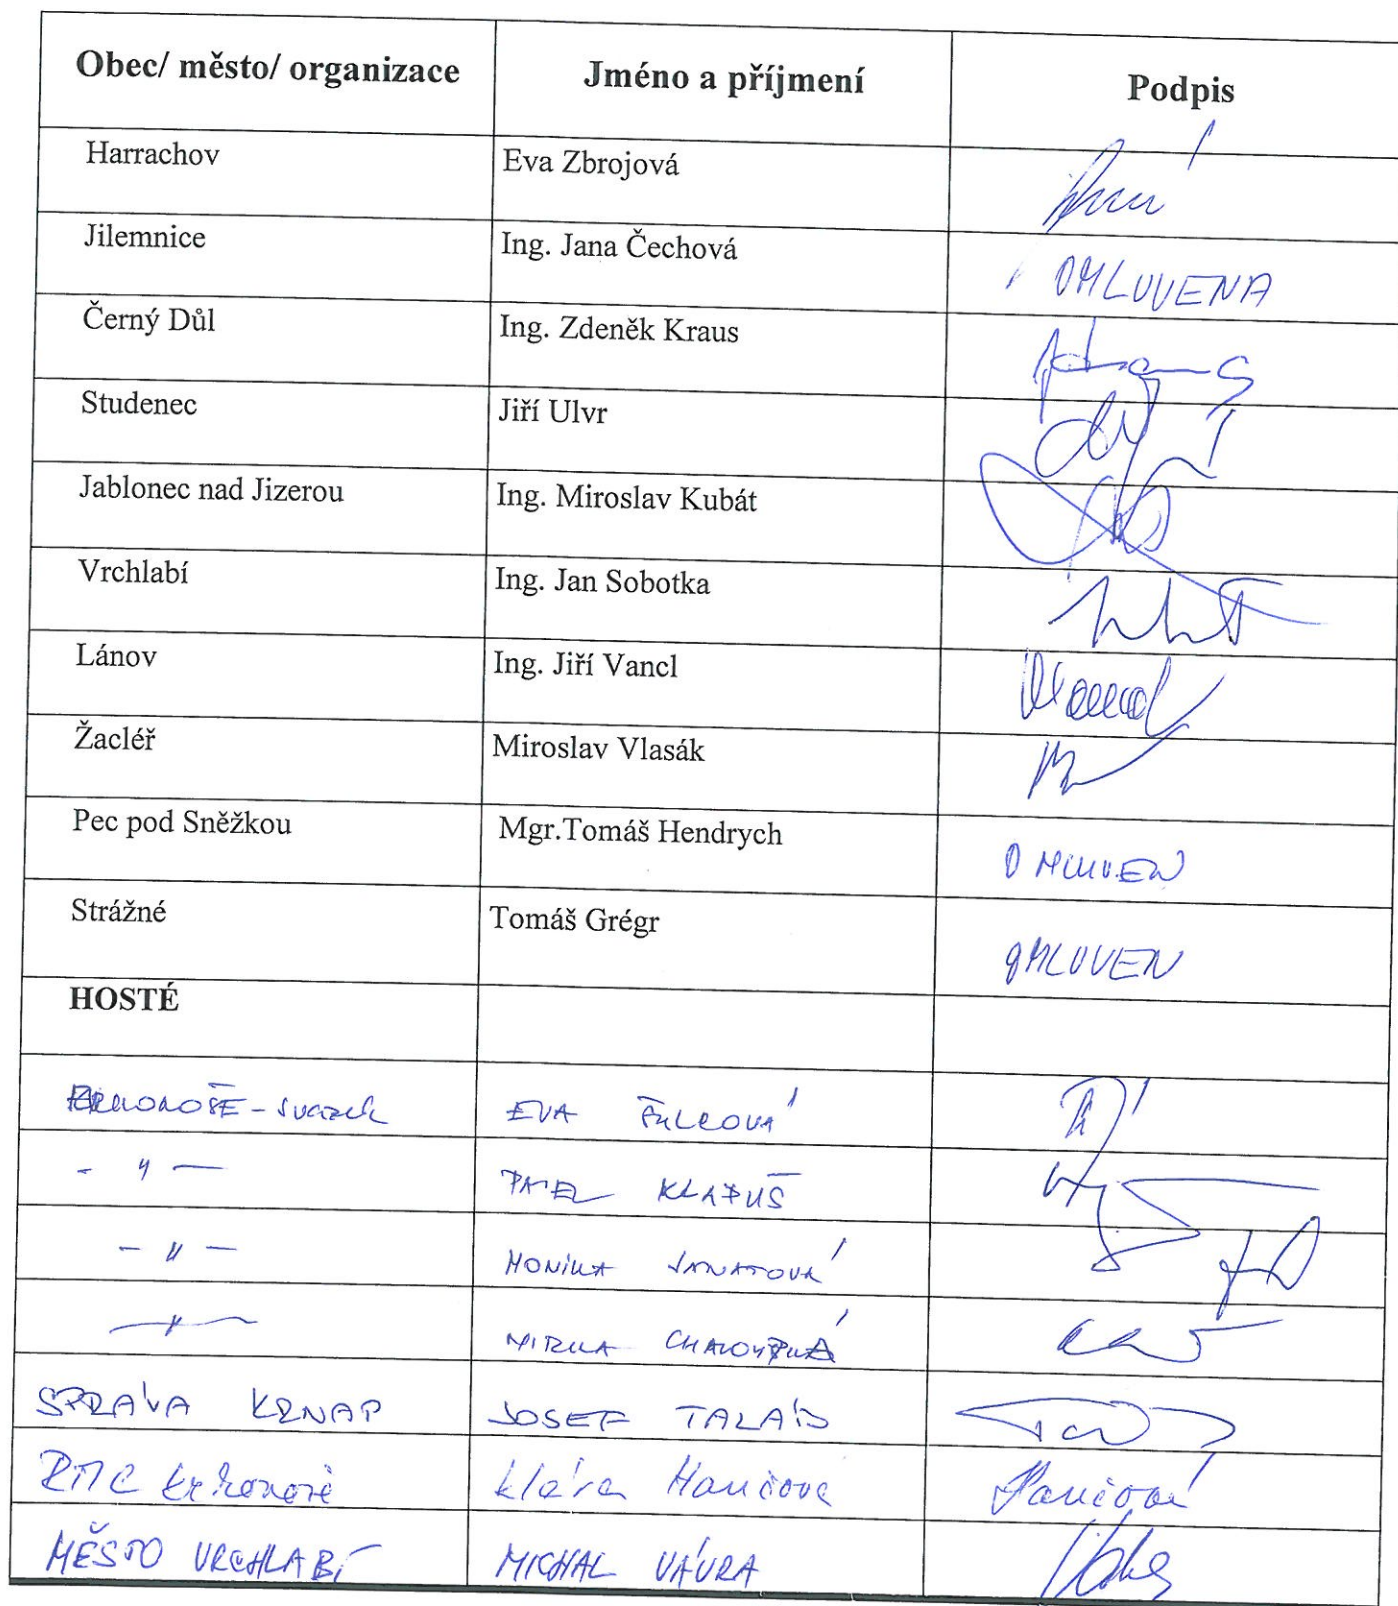 Obec/ město/ organizace Jméno a příjmení Podpis
Harrachov Eva Zbrojová
Jilemnice Ing. Jana Čechová OMLUVENA
Černý Důl Ing. Zdeněk Kraus
Studenec Jiří Ulvr
Jablonec nad Jizerou Ing. Miroslav Kubát
Vrchlabí Ing. Jan Sobotka
Lánov Ing. Jiří Vancl
Žacléř Miroslav Vlasák
Pec pod Sněžkou Mgr.Tomáš Hendrych OMLUVEN
Strážné Tomáš Grégr OMLUVEN
HOSTÉ
KRKONOŠE - svazek EVA
- " - PAVEL KLAPUŠ
- " - MONIKA JANATOVÁ
- " - MIRKA CHALOUPKÁ
SPRÁVA KRNAP JOSEF
Krkonoše Klára Hančová Hančová
MĚSTO VRCHLABÍ MICHAL VÁVRA